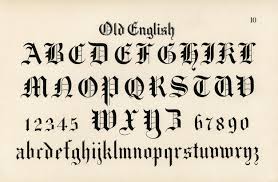 10
Old English
ABCDEFGHIJKL
MNOPQRSTUV
12345 WXYZ 67890
abcdefghijklmnopqrstuvwxyz